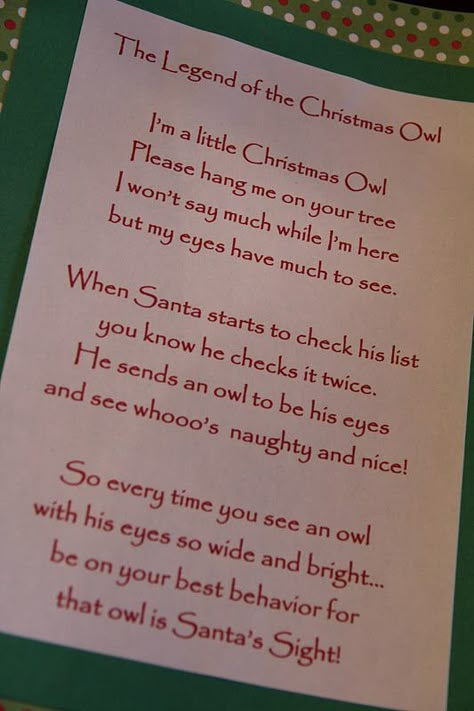 The Legend of the Christmas Owl
I'm a little Christmas Owl
Please hang me on your tree
I won't say much while I'm here
but my eyes have much to see.
When Santa starts to check his list
you know he checks it twice.
He sends an owl to be his eyes
and see whooo's naughty and nice!
So every time you see an owl
with his eyes so wide and bright...
be on your best behavior for
that owl is Santa's Sight!